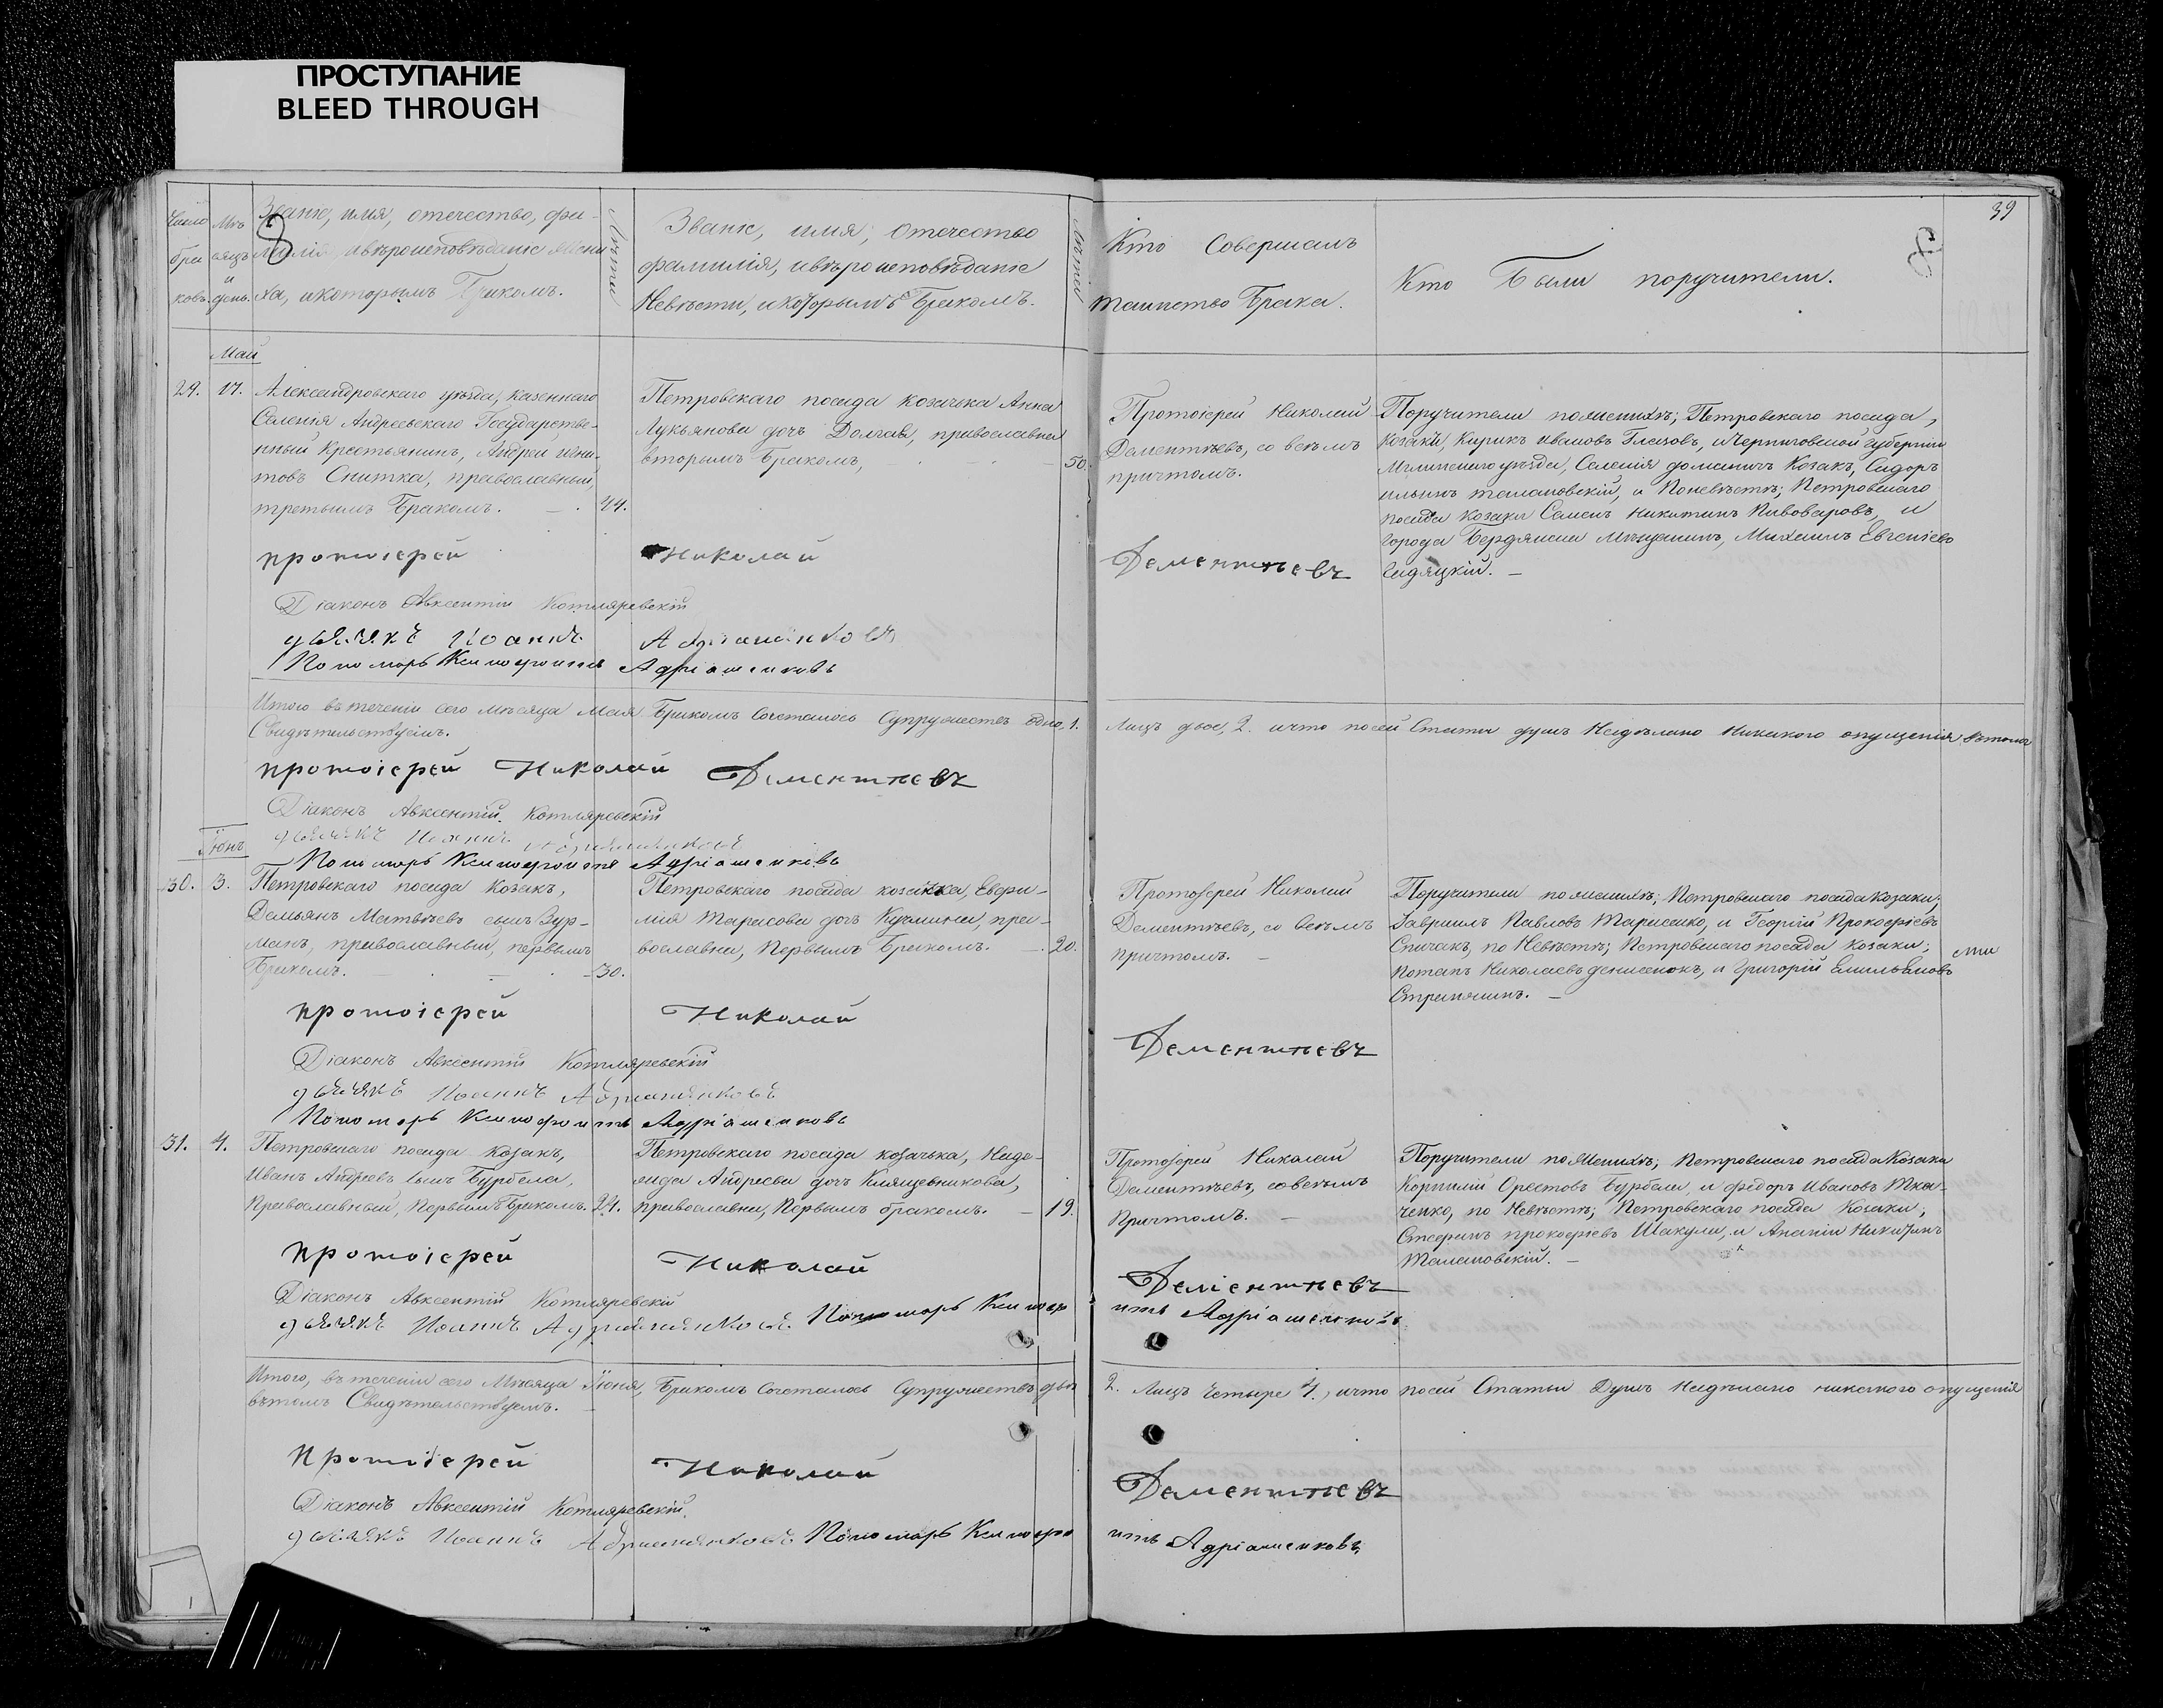 ПРОСТУПАНИЕ
BLEED THROUGH
39
Число браковъ.
Мѣсяцъ и день.
Званіе, имя, отечество, фамилія ивѣроисповѣданіе Жениха, икоторымъ Бракомъ.
Лѣта
Званіе, имя, отечество
фамилія, ивѣроисповѣданіе
Невѣсты, икоторымъ Бракомъ.
Лѣта
Кто Совершалъ
таинство Брака.
Кто Были поручители.
Май
29. 17. Александровскаго уѣзда, казеннаго
Селенія Андреевскаго Государстве-
нный Крестьянинъ, Андрей
Снитка, православный,
третьимъ Бракомъ. 44.
Петровскаго посада козачка Анна
Лукьянова дочь Долгая, православна
вторымъ Бракомъ, 50.
Протоіерей Николай
Дементѣевъ, со всѣмъ
причтомъ.
Поручители поженихѣ; Петровскаго посада,
козаки, Кирикъ ивановъ и Черниговской губерніи
Мглинскаго уѣзда, Селенія Козакъ, Сидоръ
ильинъ и Поневѣстѣ; Петровскаго
посада козакъ Семенъ никитинъ Пивоваровъ, и
города Бердянска Мѣщанинъ, Михаилъ Евгеніевъ
протоіерей Николай Дементѣевъ
Діаконъ Авксентій Котляревскій
дьячекъ Иоаннъ Адріашенковъ
Пономарь Ксенофонтъ Адріашенковъ
Итого втеченіи сего мѣсяца Мая Бракомъ Сочеталось Супружествъ одно, 1. Лицъ двое, 2. ичто посей Статьи душъ Несдѣлано Никакого опущенія втомъ
Свидѣтельствуемъ.
протоіерей Николай Дементѣевъ
Діаконъ Авксентій Котляревскій
дьячекъ Иоаннъ Адріашенковъ
Пономарь Ксенофонтъ Адріашенковъ
Іюнь
30. 3. Петровскаго посада Козакъ,
Демьянъ Матвѣевъ сынъ Зур-
манъ, православный, первымъ
Бракомъ. 30.
Петровскаго посада козачка, Евфи-
мія Тарасова дочь Кучмина, пра-
вославна, Первымъ Бракомъ. 20.
Протоіерей Николай
Дементѣевъ, со всѣмъ
причтомъ.
Поручители поженихѣ; Петровскаго посада козаки;
Гавриилъ Павловъ Тарасенко, и Георгій Прокофіевъ
Спичакъ, по Невѣстѣ; Петровскаго посада козаки;
Потапъ Николаевъ денисенокъ, и Григорій Емильяновъ
протоіерей Николай Дементѣевъ
Діаконъ Авксентій Котляревскій
дьячекъ Иоаннъ Адріашенковъ
Пономарь Ксенофонтъ Адріашенковъ
31. 4. Петровскаго посада козакъ,
Иванъ Андреевъ сынъ Бурбела,
Православный, Первымъ Бракомъ. 24.
Петровскаго посада козачька, Наде-
жда Андреева дочь Клящевникова,
православна, Первымъ бракомъ. 19.
Протоіерей Николай
Дементѣевъ, совсѣмъ
Причтомъ.
Поручители поЖенихѣ; Петровскаго посада Козаки
Корнилій Орестовъ Бурбела, и федоръ Ивановъ Тка-
ченко, по Невѣстѣ; Петровскаго посада Козаки;
прокофіевъ Шакула, и Ананій Никитинъ
протоіерей Николай Дементѣевъ
Діаконъ Авксентій Котляревскій
дьячекъ Иоаннъ Адріашенковъ Пономарь Ксенофонтъ Адріашенковъ
Итого, втеченіи сего Мѣсяца Іюня, Бракомъ Сочеталось Супружествъ два 2. Лицъ Четыре 4., ичто посей Статьи Душъ Несдѣлано никакого опущенія
втомъ Свидѣтельствуемъ.
Протоіерей Николай Дементѣевъ
Діаконъ Авксентій Котляревскій.
дьячекъ Иоаннъ Адріашенковъ Пономарь Ксенофонтъ Адріашенковъ